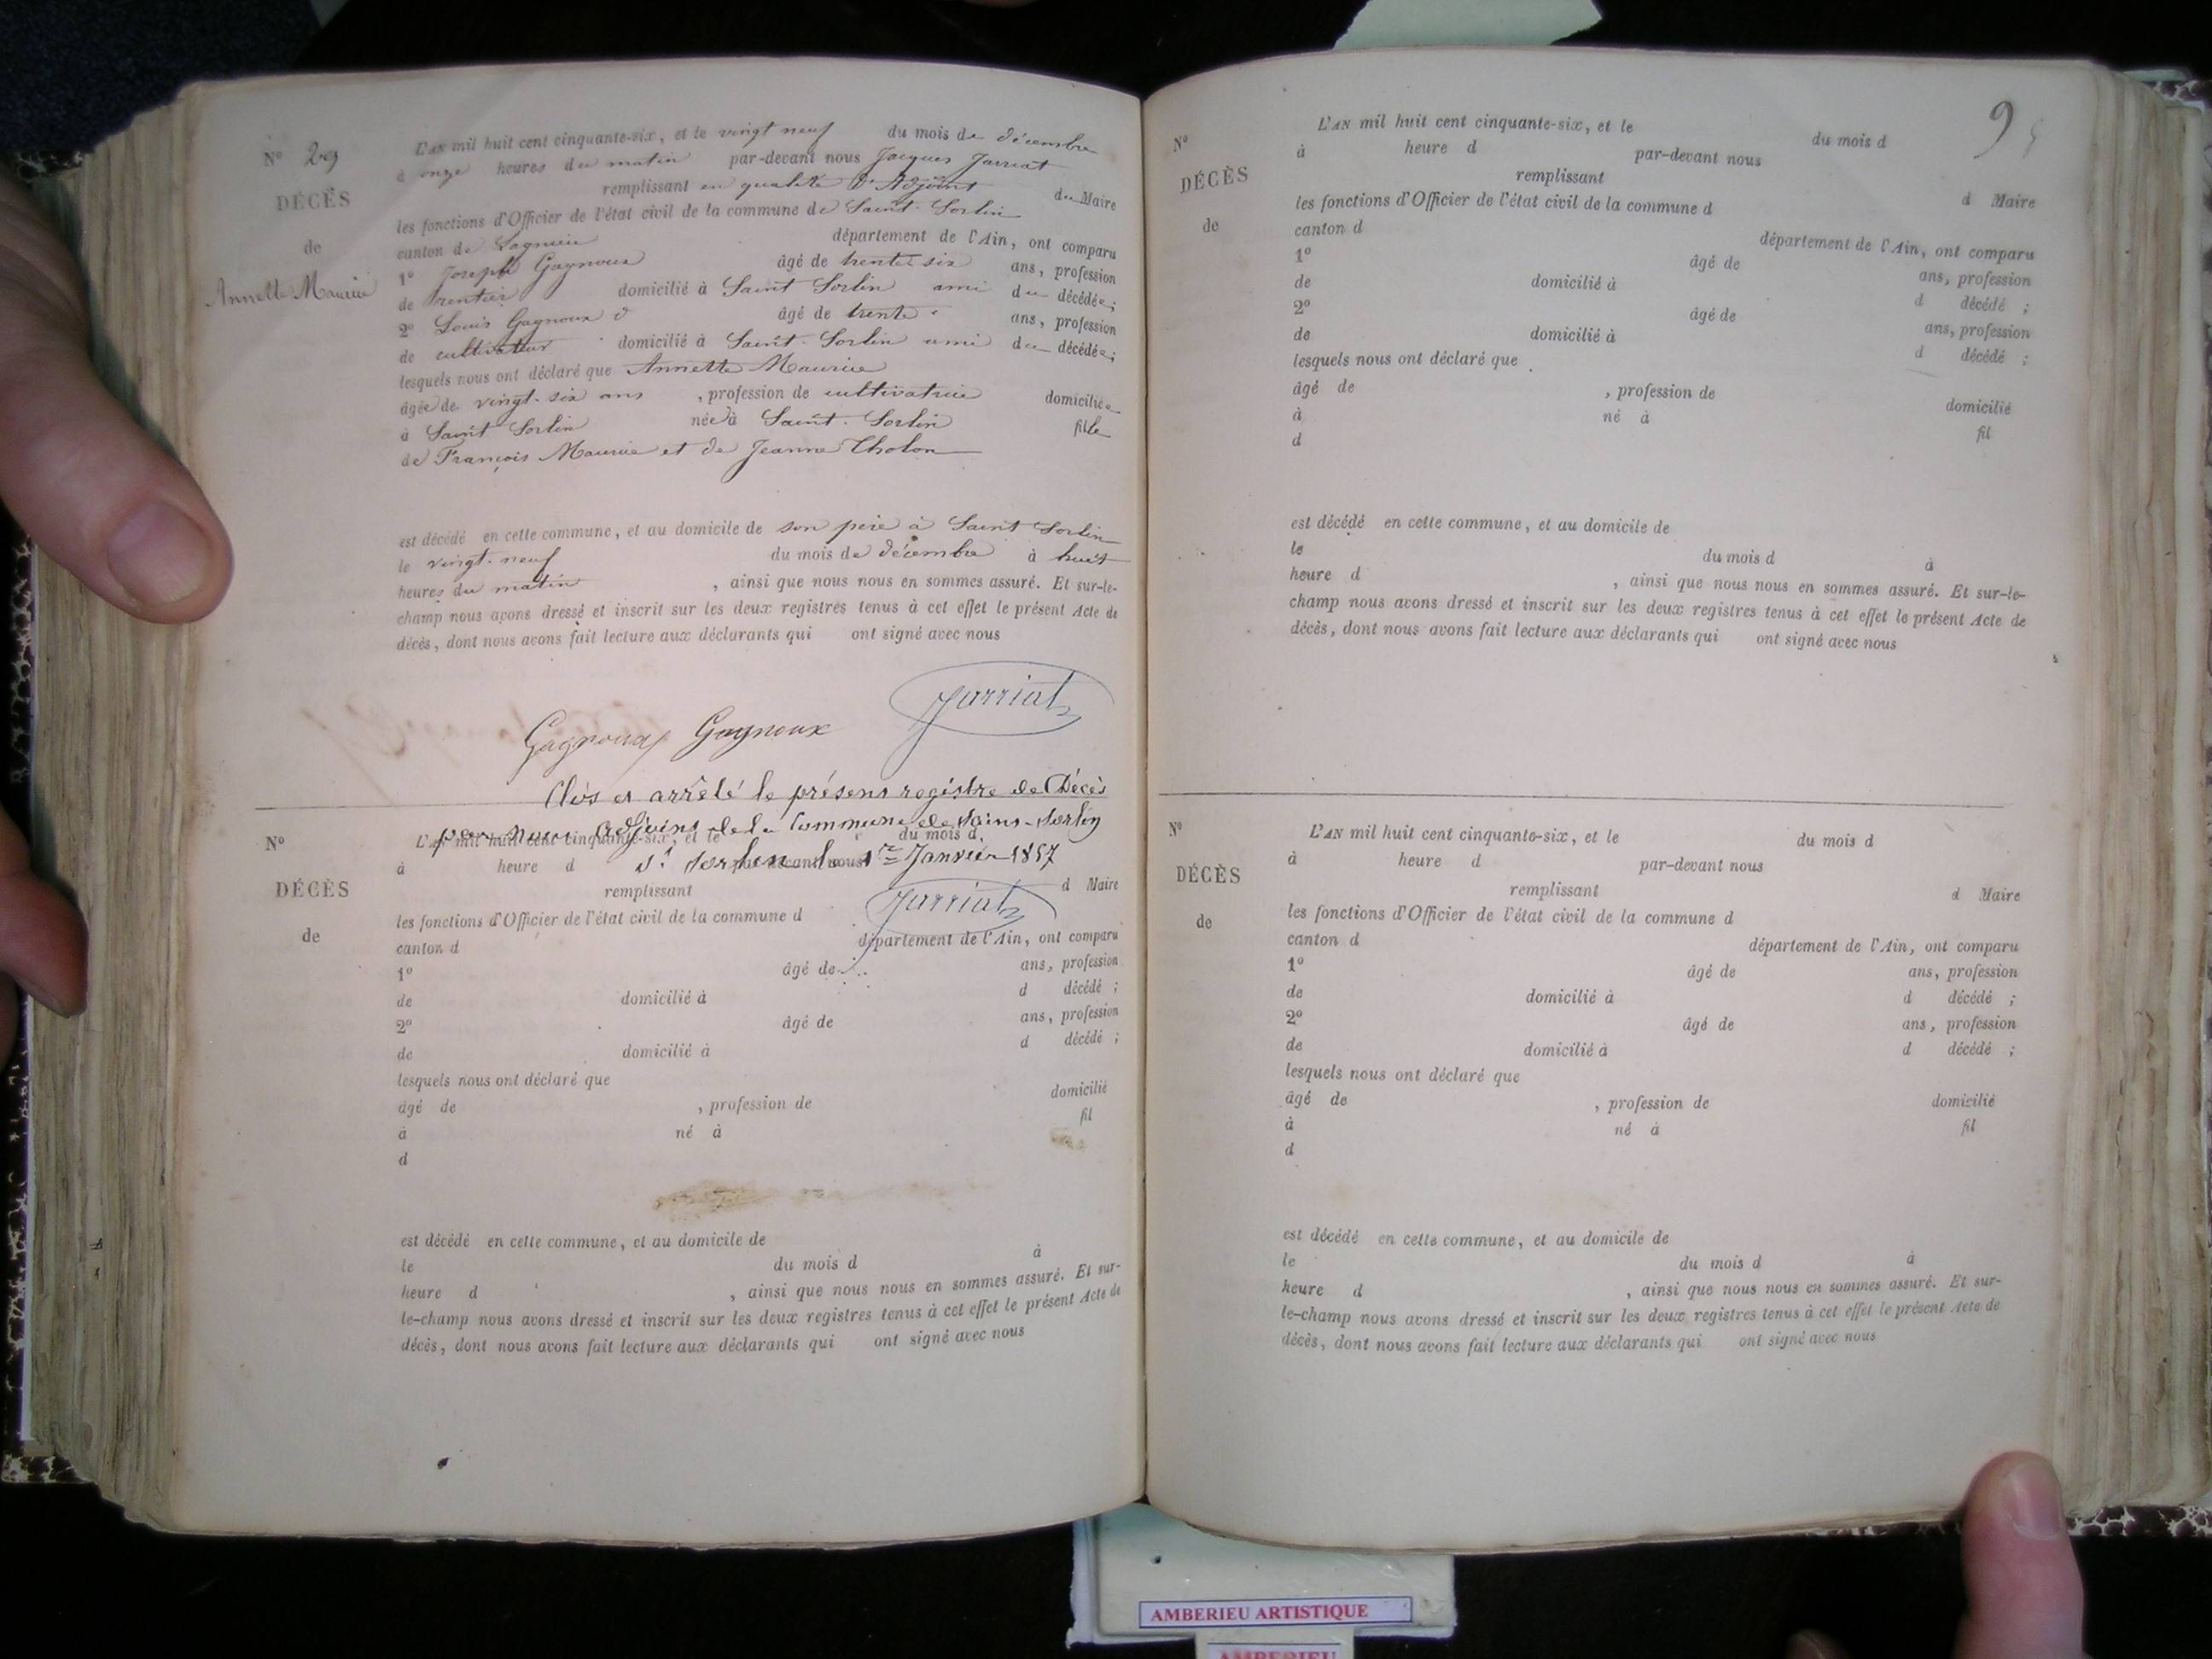 N° 29
DÉCÈS
de
Annette Maurice
L'AN mil huit cent cinquante-six, et le vingt neuf du mois de décembre
à onze heures du matin par-devant nous Jacques Jarriat
remplissant en qualité d'Adjoint du Maire
les fonctions d'Officier de l'état civil de la commune de Saint-Sorlin
canton de Lagnieu département de l'Ain, ont comparu
1° Joseph Gagnoux âgé de trente six ans, profession
de rentier domicilié à Saint Sorlin ami du décédée;
2° Louis Gagnoux âgé de trente ans, profession
de cultivateur domicilié à Saint-Sorlin ami du décédée;
lesquels nous ont déclaré que Annette Maurice
âgée de vingt-six ans, profession de cultivatrice domiciliée
à Saint Sorlin née à Saint-Sorlin fille
de François Maurice et de Jeanne Tholon
est décédé en cette commune, et au domicile de son père à Saint Sorlin
le vingt-neuf du mois de décembre à huit
heures du matin, ainsi que nous nous en sommes assuré. Et sur-le-
champ nous avons dressé et inscrit sur les deux registres tenus à cet effet le présent Acte de
décès, dont nous avons fait lecture aux déclarants qui ont signé avec nous
Jarriat
Gagnoux Gagnoux
Clos et arrêté le présent registre de Décès
par nous adjoint de la Commune de Saint-Sorlin
St Sorlin le 1er Janvier 1857
Jarriat
N°
DÉCÈS
de
L'AN mil huit cent cinquante-six, et le du mois d
à heure d par-devant nous
remplissant d Maire
les fonctions d'Officier de l'état civil de la commune d
canton d département de l'Ain, ont comparu
1° âgé de ans, profession
de domicilié à d décédé ;
2° âgé de ans, profession
de domicilié à d décédé ;
lesquels nous ont déclaré que
âgé de , profession de domicilié
à né à fil
d
est décédé en cette commune, et au domicile de
le du mois d à
heure d , ainsi que nous nous en sommes assuré. Et sur-
le-champ nous avons dressé et inscrit sur les deux registres tenus à cet effet le présent Acte de
décès, dont nous avons fait lecture aux déclarants qui ont signé avec nous
9
N°
DÉCÈS
de
L'AN mil huit cent cinquante-six, et le du mois d
à heure d par-devant nous
remplissant d Maire
les fonctions d'Officier de l'état civil de la commune d
canton d département de l'Ain, ont comparu
1° âgé de ans, profession
de domicilié à d décédé ;
2° âgé de ans, profession
de domicilié à d décédé ;
lesquels nous ont déclaré que
âgé de , profession de domicilié
à né à fil
d
est décédé en cette commune, et au domicile de
le du mois d à
heure d , ainsi que nous nous en sommes assuré. Et sur-le-
champ nous avons dressé et inscrit sur les deux registres tenus à cet effet le présent Acte de
décès, dont nous avons fait lecture aux déclarants qui ont signé avec nous
N°
DÉCÈS
de
L'AN mil huit cent cinquante-six, et le du mois d
à heure d par-devant nous
remplissant d Maire
les fonctions d'Officier de l'état civil de la commune d
canton d département de l'Ain, ont comparu
1° âgé de ans, profession
de domicilié à d décédé ;
2° âgé de ans, profession
de domicilié à d décédé ;
lesquels nous ont déclaré que
âgé de , profession de domicilié
à né à fil
d
est décédé en cette commune, et au domicile de
le du mois d à
heure d , ainsi que nous nous en sommes assuré. Et sur-
le-champ nous avons dressé et inscrit sur les deux registres tenus à cet effet le présent Acte de
décès, dont nous avons fait lecture aux déclarants qui ont signé avec nous
AMBERIEU ARTISTIQUE
AMBERIEU